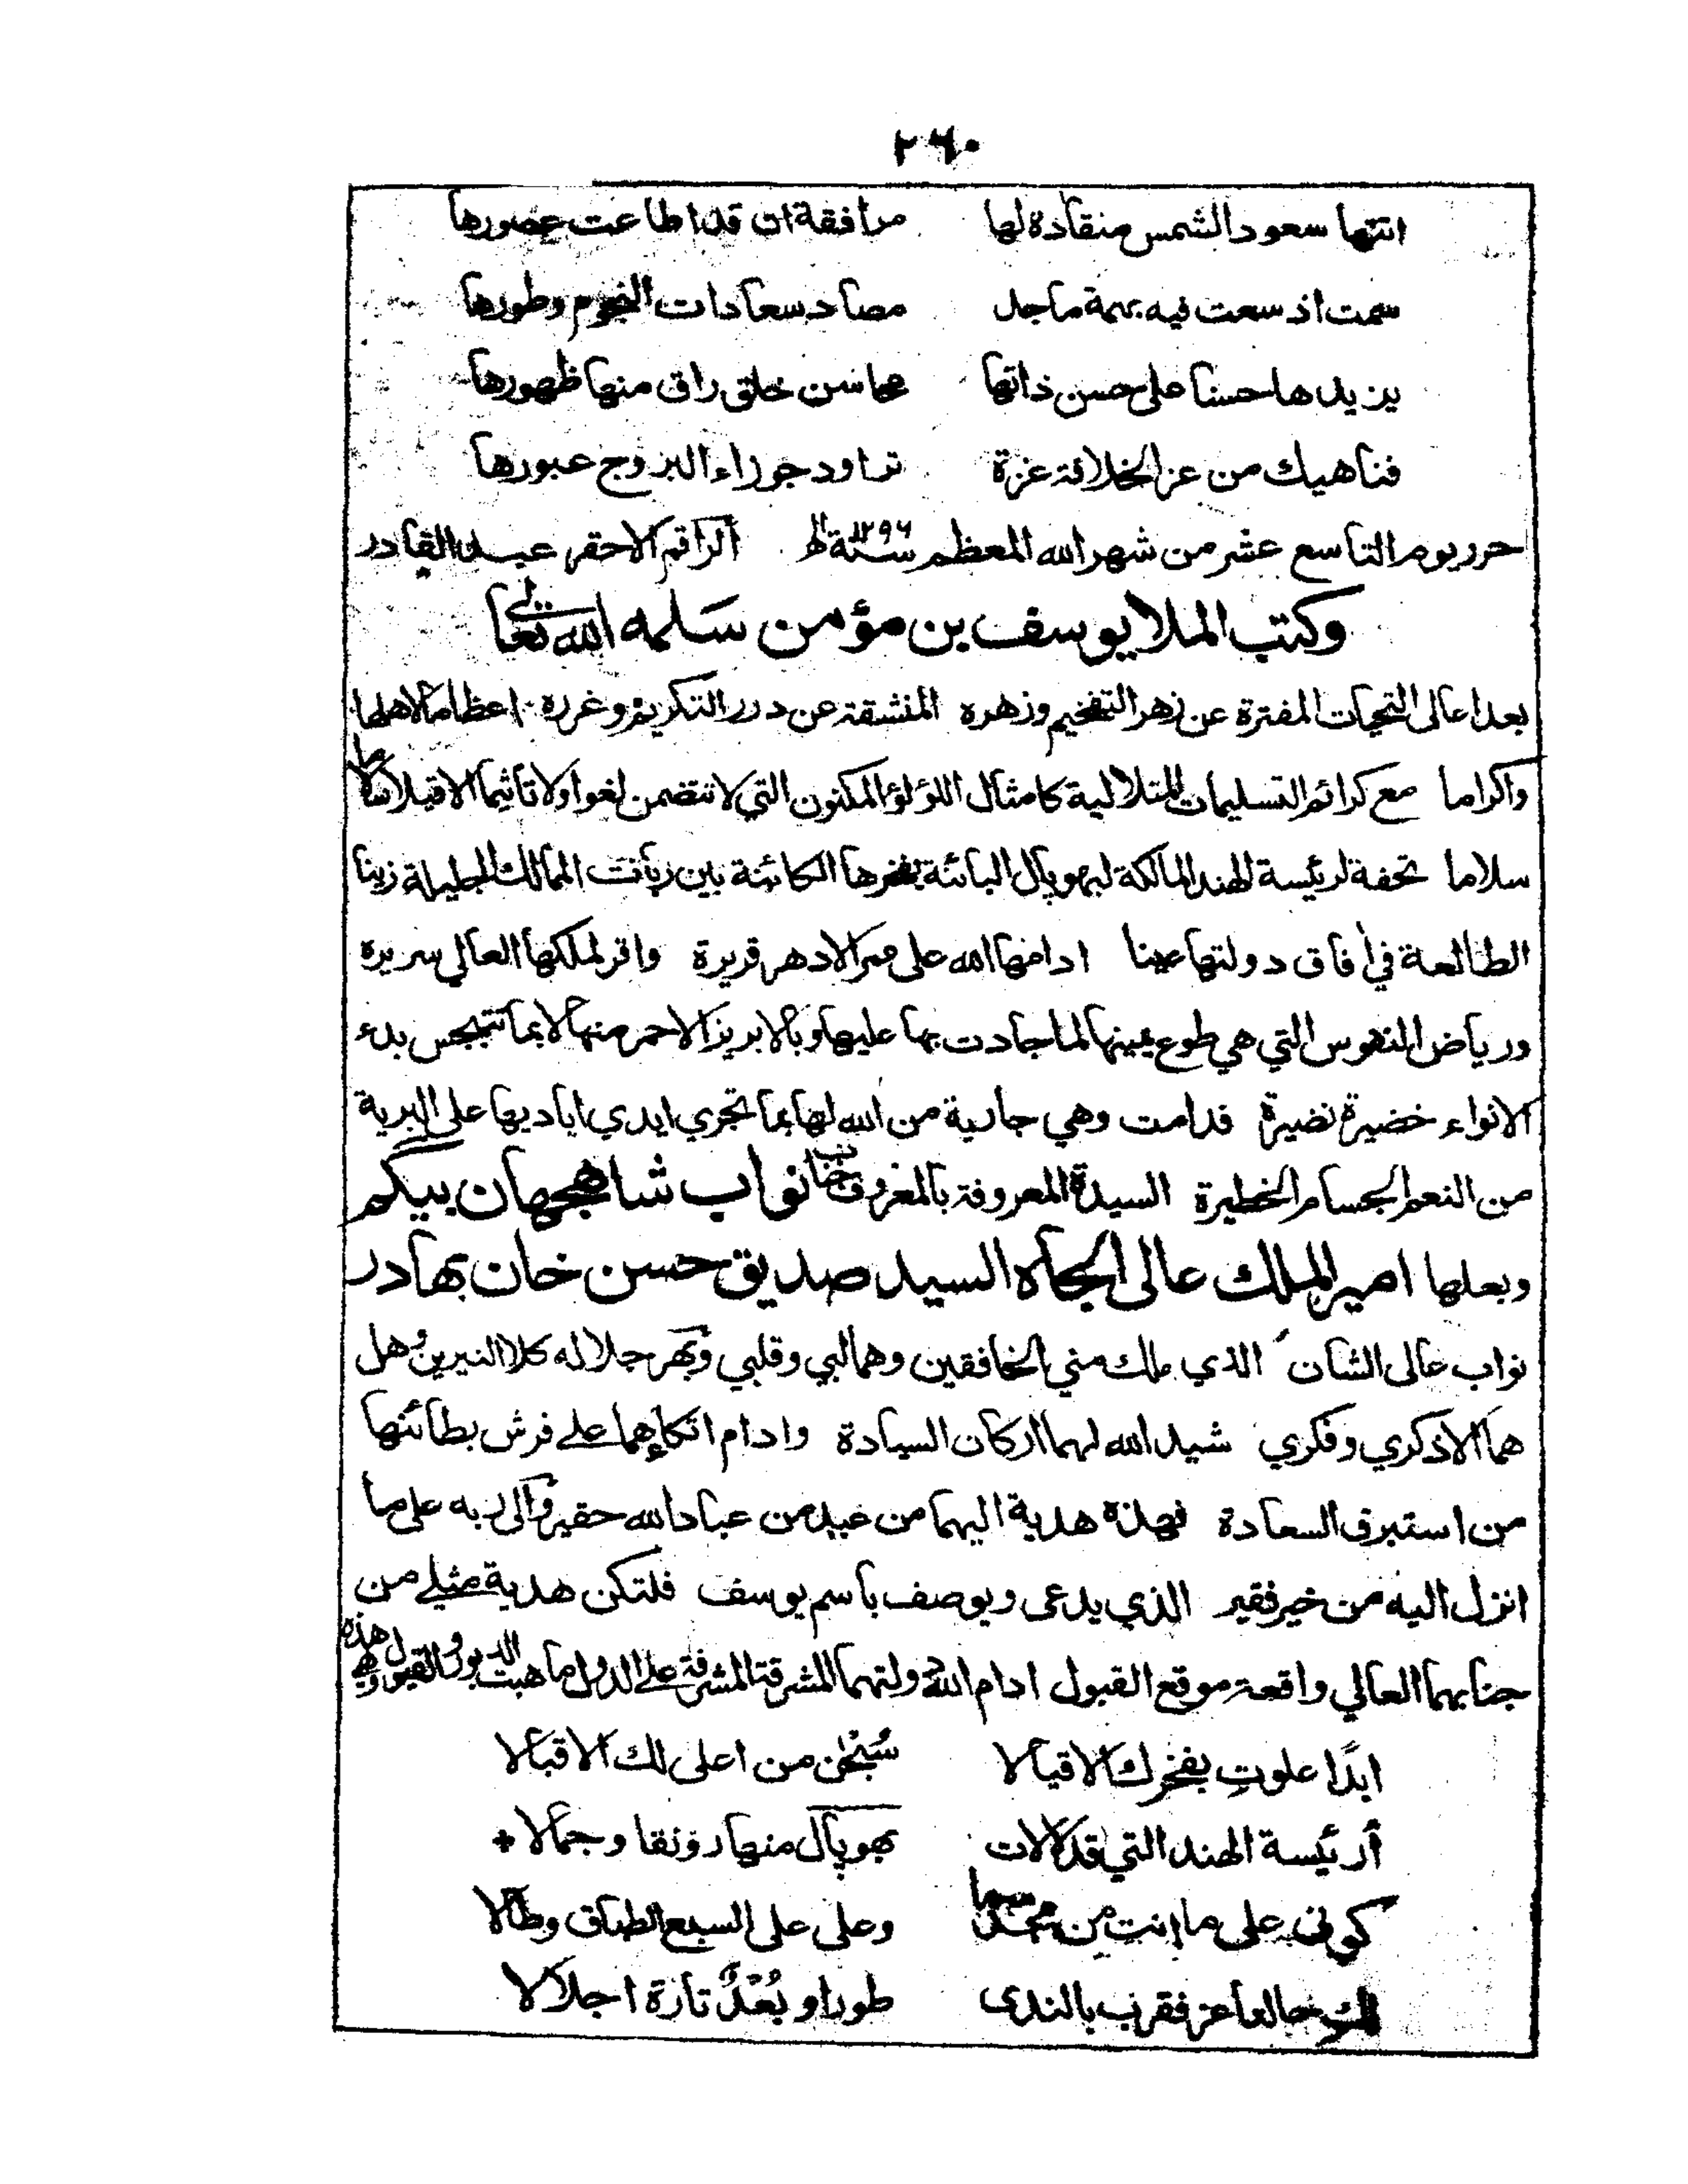 ٢٦٠
اتتها سعود الشمس منقادة لها مرافقة ان قد اطاعت عصورها
سمت اذ سعت فيه بهمة ماجد مصاد سعادات النجوم وطورها
يزيدها حسنا على حسن ذاتها محاسن خلق راق منها ظهورها
فناهيك من عز الخلافة عزة تراود جوزاء البروج عبورها
حرر يوم التاسع عشر من شهر الله المعظم سنة ١٢٩٦ه الراقم الاحقر عبد القادر
وكتب الملا يوسف بن مؤمن سلمه الله تعالى
بعد اعالى التحيات المفترة عن زهر التفخيم وزهره المنشقة عن درر التكريم وغرره اعظاما لاهلها
واكراما مع كرائم التسليمات المتلالية كامثال اللؤلؤ المكنون التي لا تتضمن لغوا ولا تاثيما الا قيلا سلاما
سلاما تحفة لرئيسة الهند المالكة لبهوپال البائنة بفخرها الكائنة بين ربات الممالك الجليلة زينا
الطالعة في أفاق دولتها عينا ادامها الله على ممر الادهر قريرة واقر لملكها العالي سريره
ورياض النفوس التي هي طوع يمينها لما جادت بها عليها وبالابريز الاحمر منها لا بما تتبجس بدء
الانواء خضيرة نضيرة فدامت وهي جارية من الله لها بما تجري ايدي اياديها على البرية
من النعم الجسام الخطيرة السيدة المعروفة بالمعروف جناب نواب شاهجهان بيگم
وبعلها امير الملك عالى الجاه السيد صديق حسن خان بهادر
نواب عالى الشان الذي ملك مني الخافقين وهما لبي وقلبي وبهر جلاله كلا النيرين وهل
هما الا ذكري وفكري شيد الله لهما اركان السيادة وادام اتكاءهما على فرش بطائنها
من استبرق السعادة فهذه هدية اليهما من عبد من عباد الله حقير والى ربه على ما
انزل اليه من خير فقير الذي يدعى ويوصف باسم يوسف فلتكن هدية مثلي من
جنابهما العالي واقعة موقع القبول ادام الله دولتهما المشرقة المشرفة على الدول ما هبت الدبور والقبول وهي هذه
ابدًا علوتِ بفخرك الاقيالا سُبْحٰن من اعلى لك الاقبالا
أرئيسة الهند التي قد لالات بهوپال منها رونقا وجمالا +
كوني على ما انت من مجد سما وعلى على السبع الطباق وطالا
لك حالفا عز فقرب بالندى طورا وبُعْدٌ تارة اجلالا